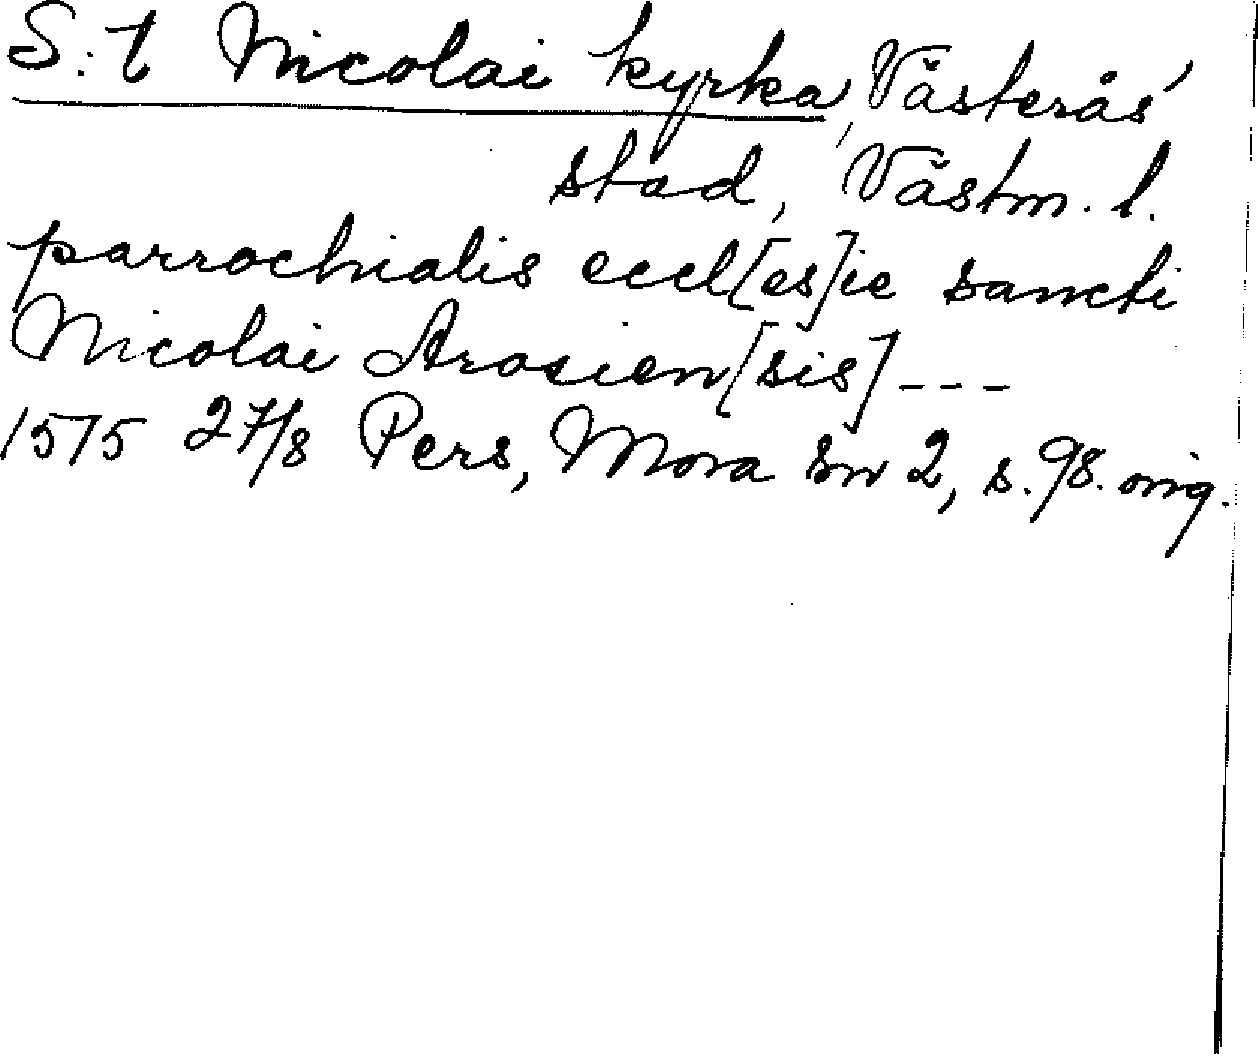 S:t Nicolai kyrka, Västerås
stad, Västm. l.
parrochialis eccl[es]ie sancti
Nicolai Arosien[sis] ---
1575 27/8 Pers, Mora sn 2, s. 98. orig.